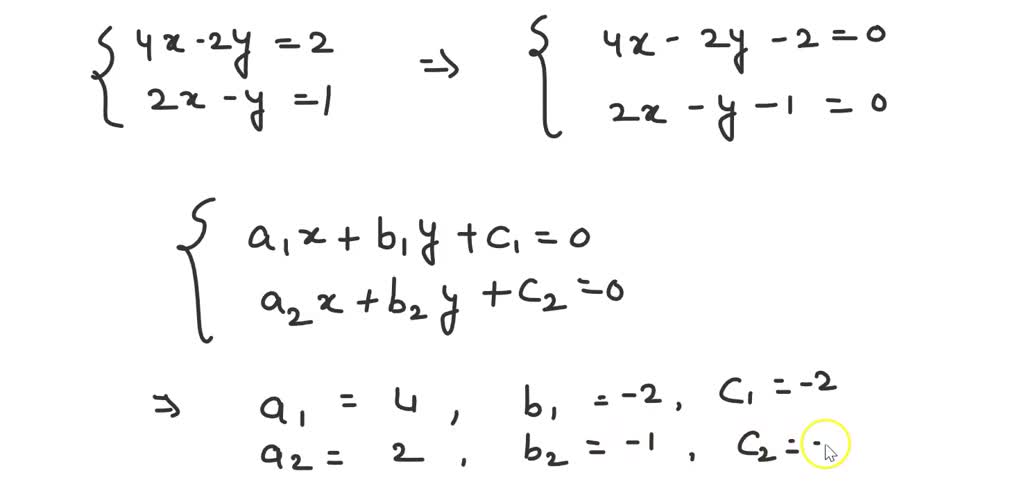 4x - 2y = 2
2x - y = 1
⇒
4x - 2y - 2 = 0
2x - y - 1 = 0
a₁x + b₁y + c₁ = 0
a₂x + b₂y + c₂ = 0
⇒ a₁ = 4 , b₁ = -2 , c₁ = -2
a₂ = 2 , b₂ = -1 , c₂ = -